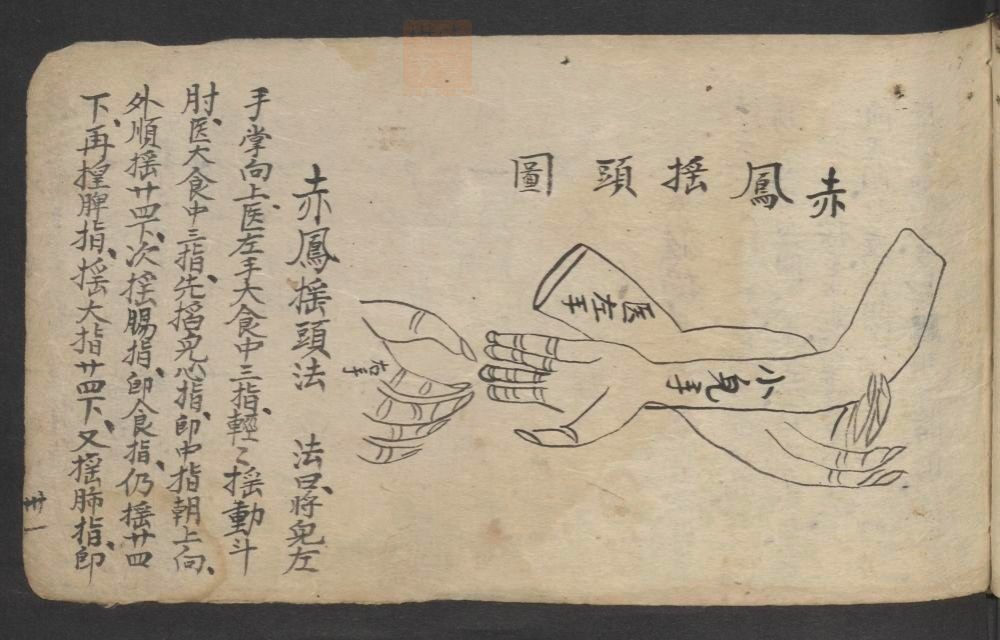 赤鳳揺頭圖
医左手
小兒手
右手
赤鳳揺頭法 法曰、将兒左
手掌向上、医左手大食中三指、輕〻揺動斗
肘、医大食中三指、先掐兒心指、即中指朝上向、
外順揺廿四下、次揺腸指、即食指、仍揺廿四
下、再揑脾指、揺大指廿四下、又揺肺指、即
卅一